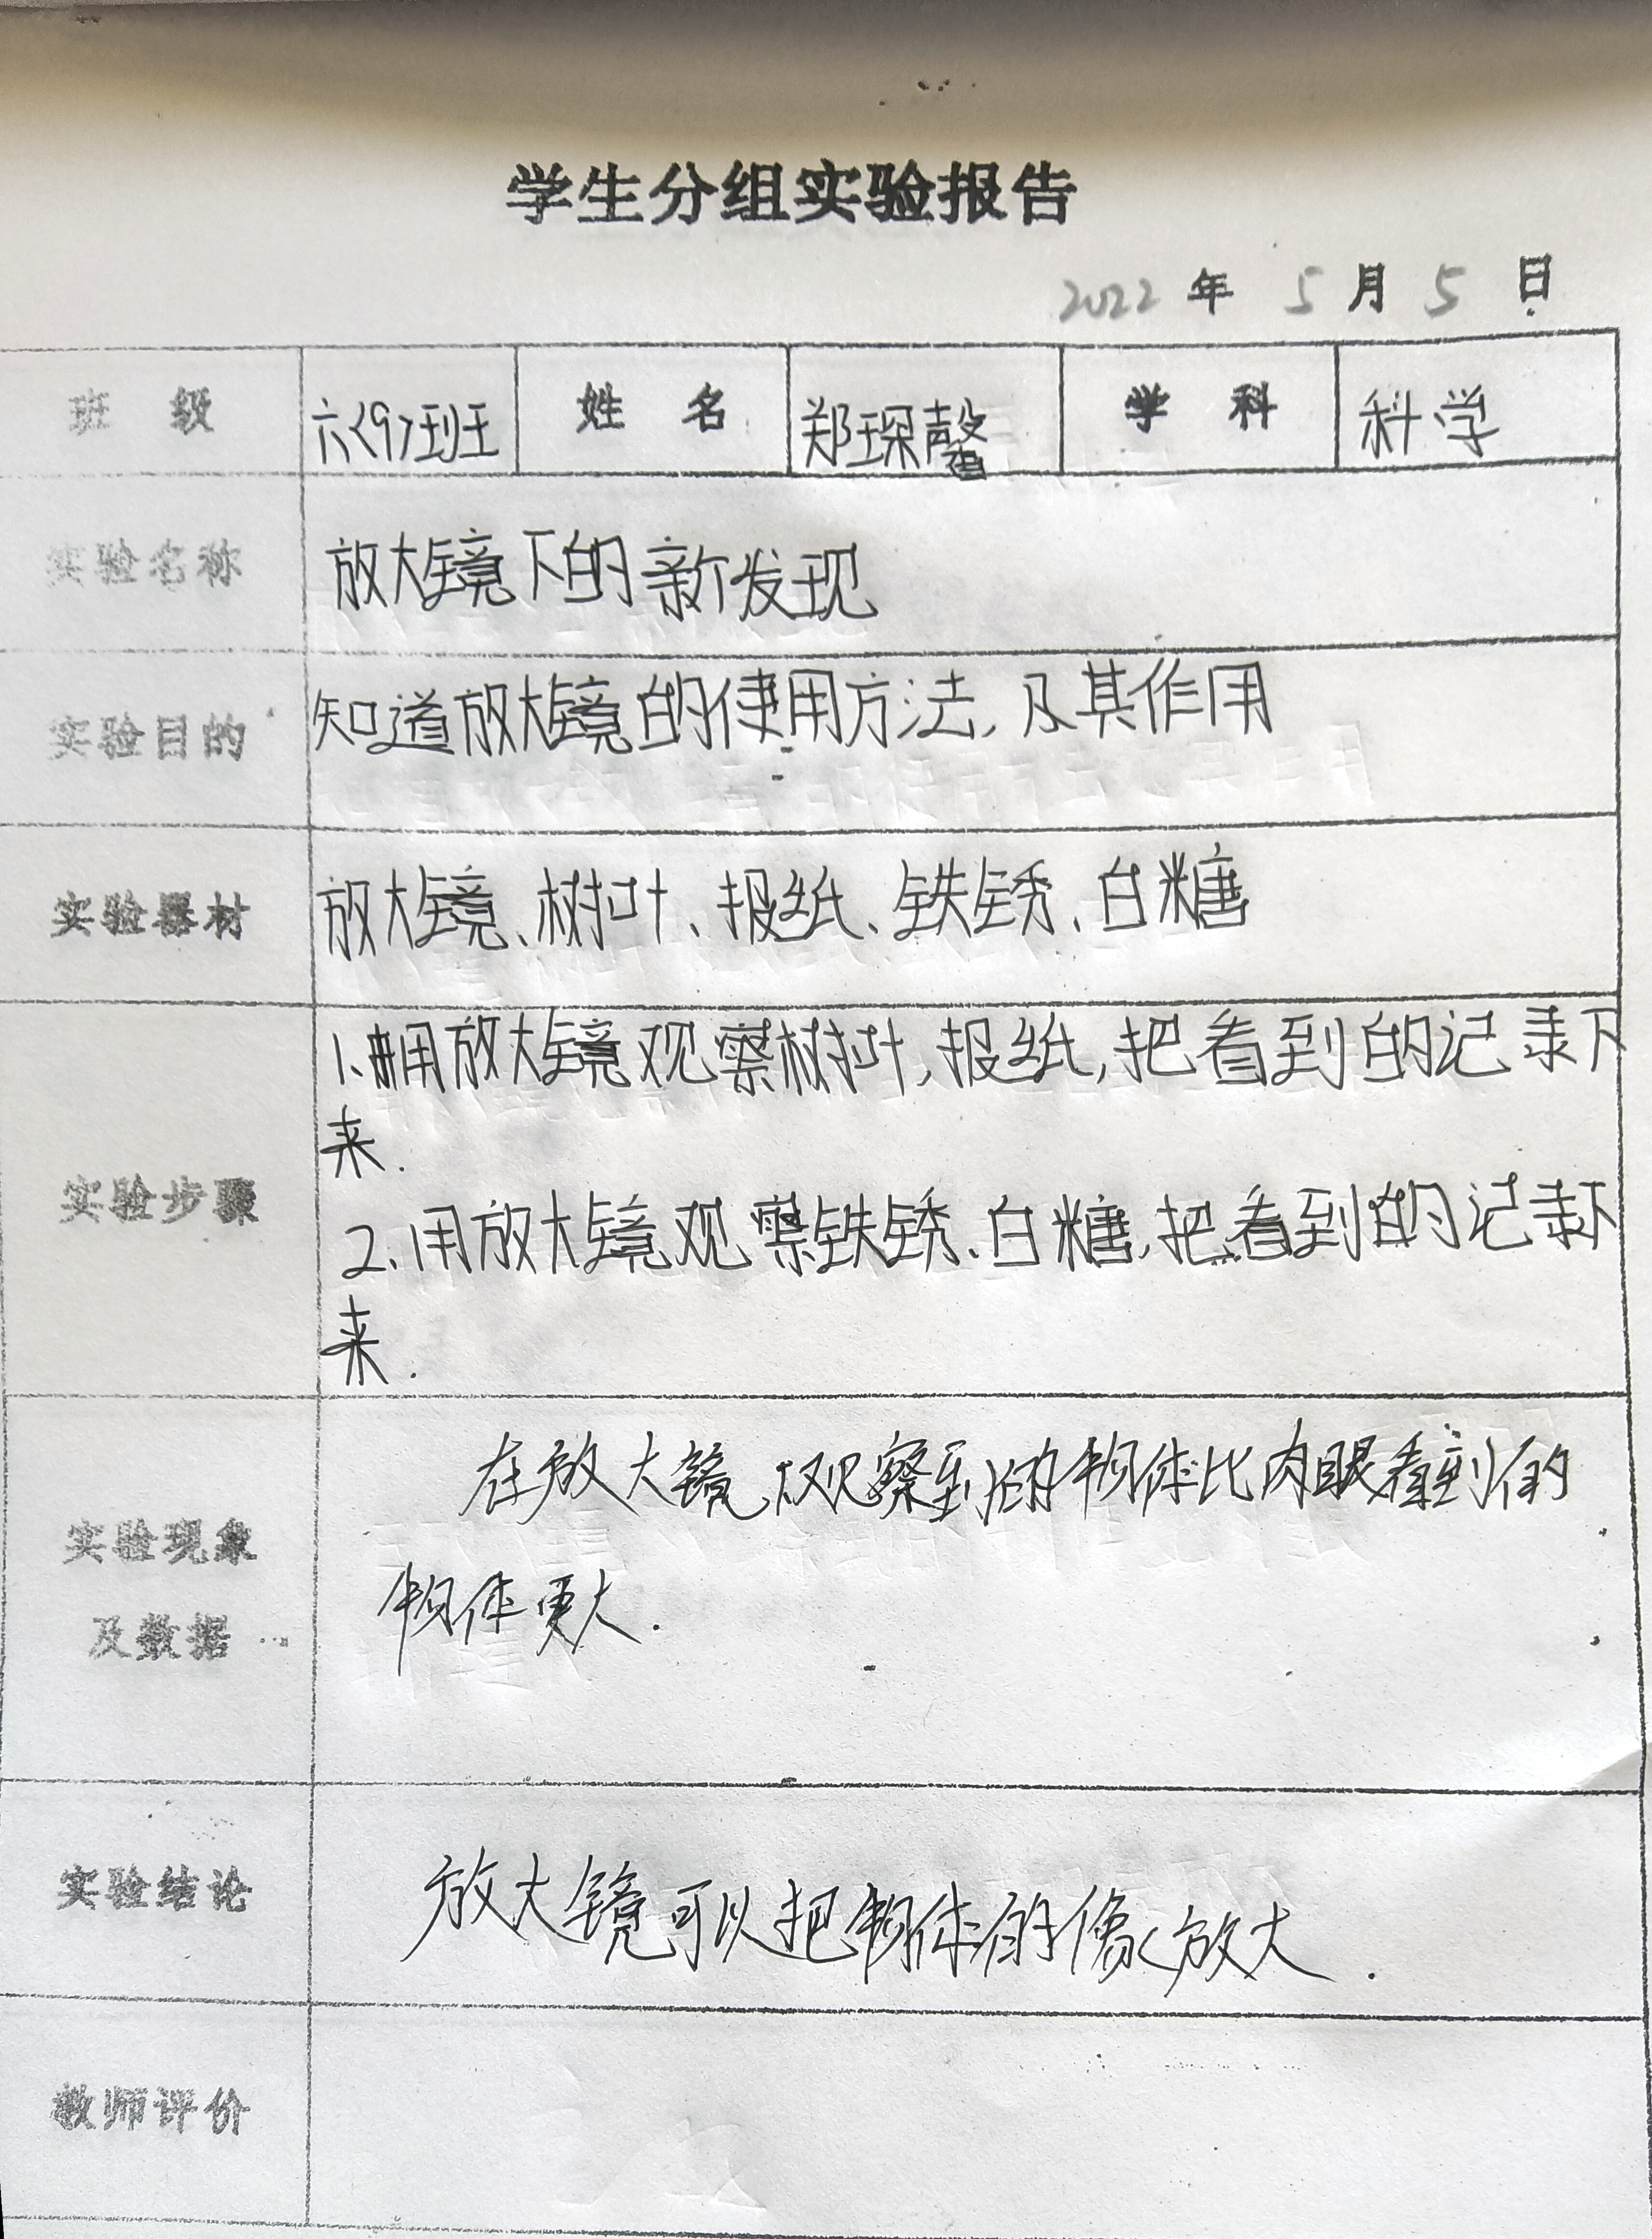 学生分组实验报告
2022 年 5 月 5 日
班 级 六(9)班 姓 名 郑琛馨 学 科 科学
实验名称 放大镜下的新发现
实验目的 知道放大镜的使用方法,及其作用
实验器材 放大镜、树叶、报纸、铁锈、白糖
1.用放大镜观察树叶,报纸,把看到的记录下
来.
实验步骤
2.用放大镜观察铁锈、白糖,把看到的记录下
来.
在放大镜观察到的物体比肉眼看到的
实验现象
物体更大.
及数据
实验结论 放大镜可以把物体的像放大.
教师评价